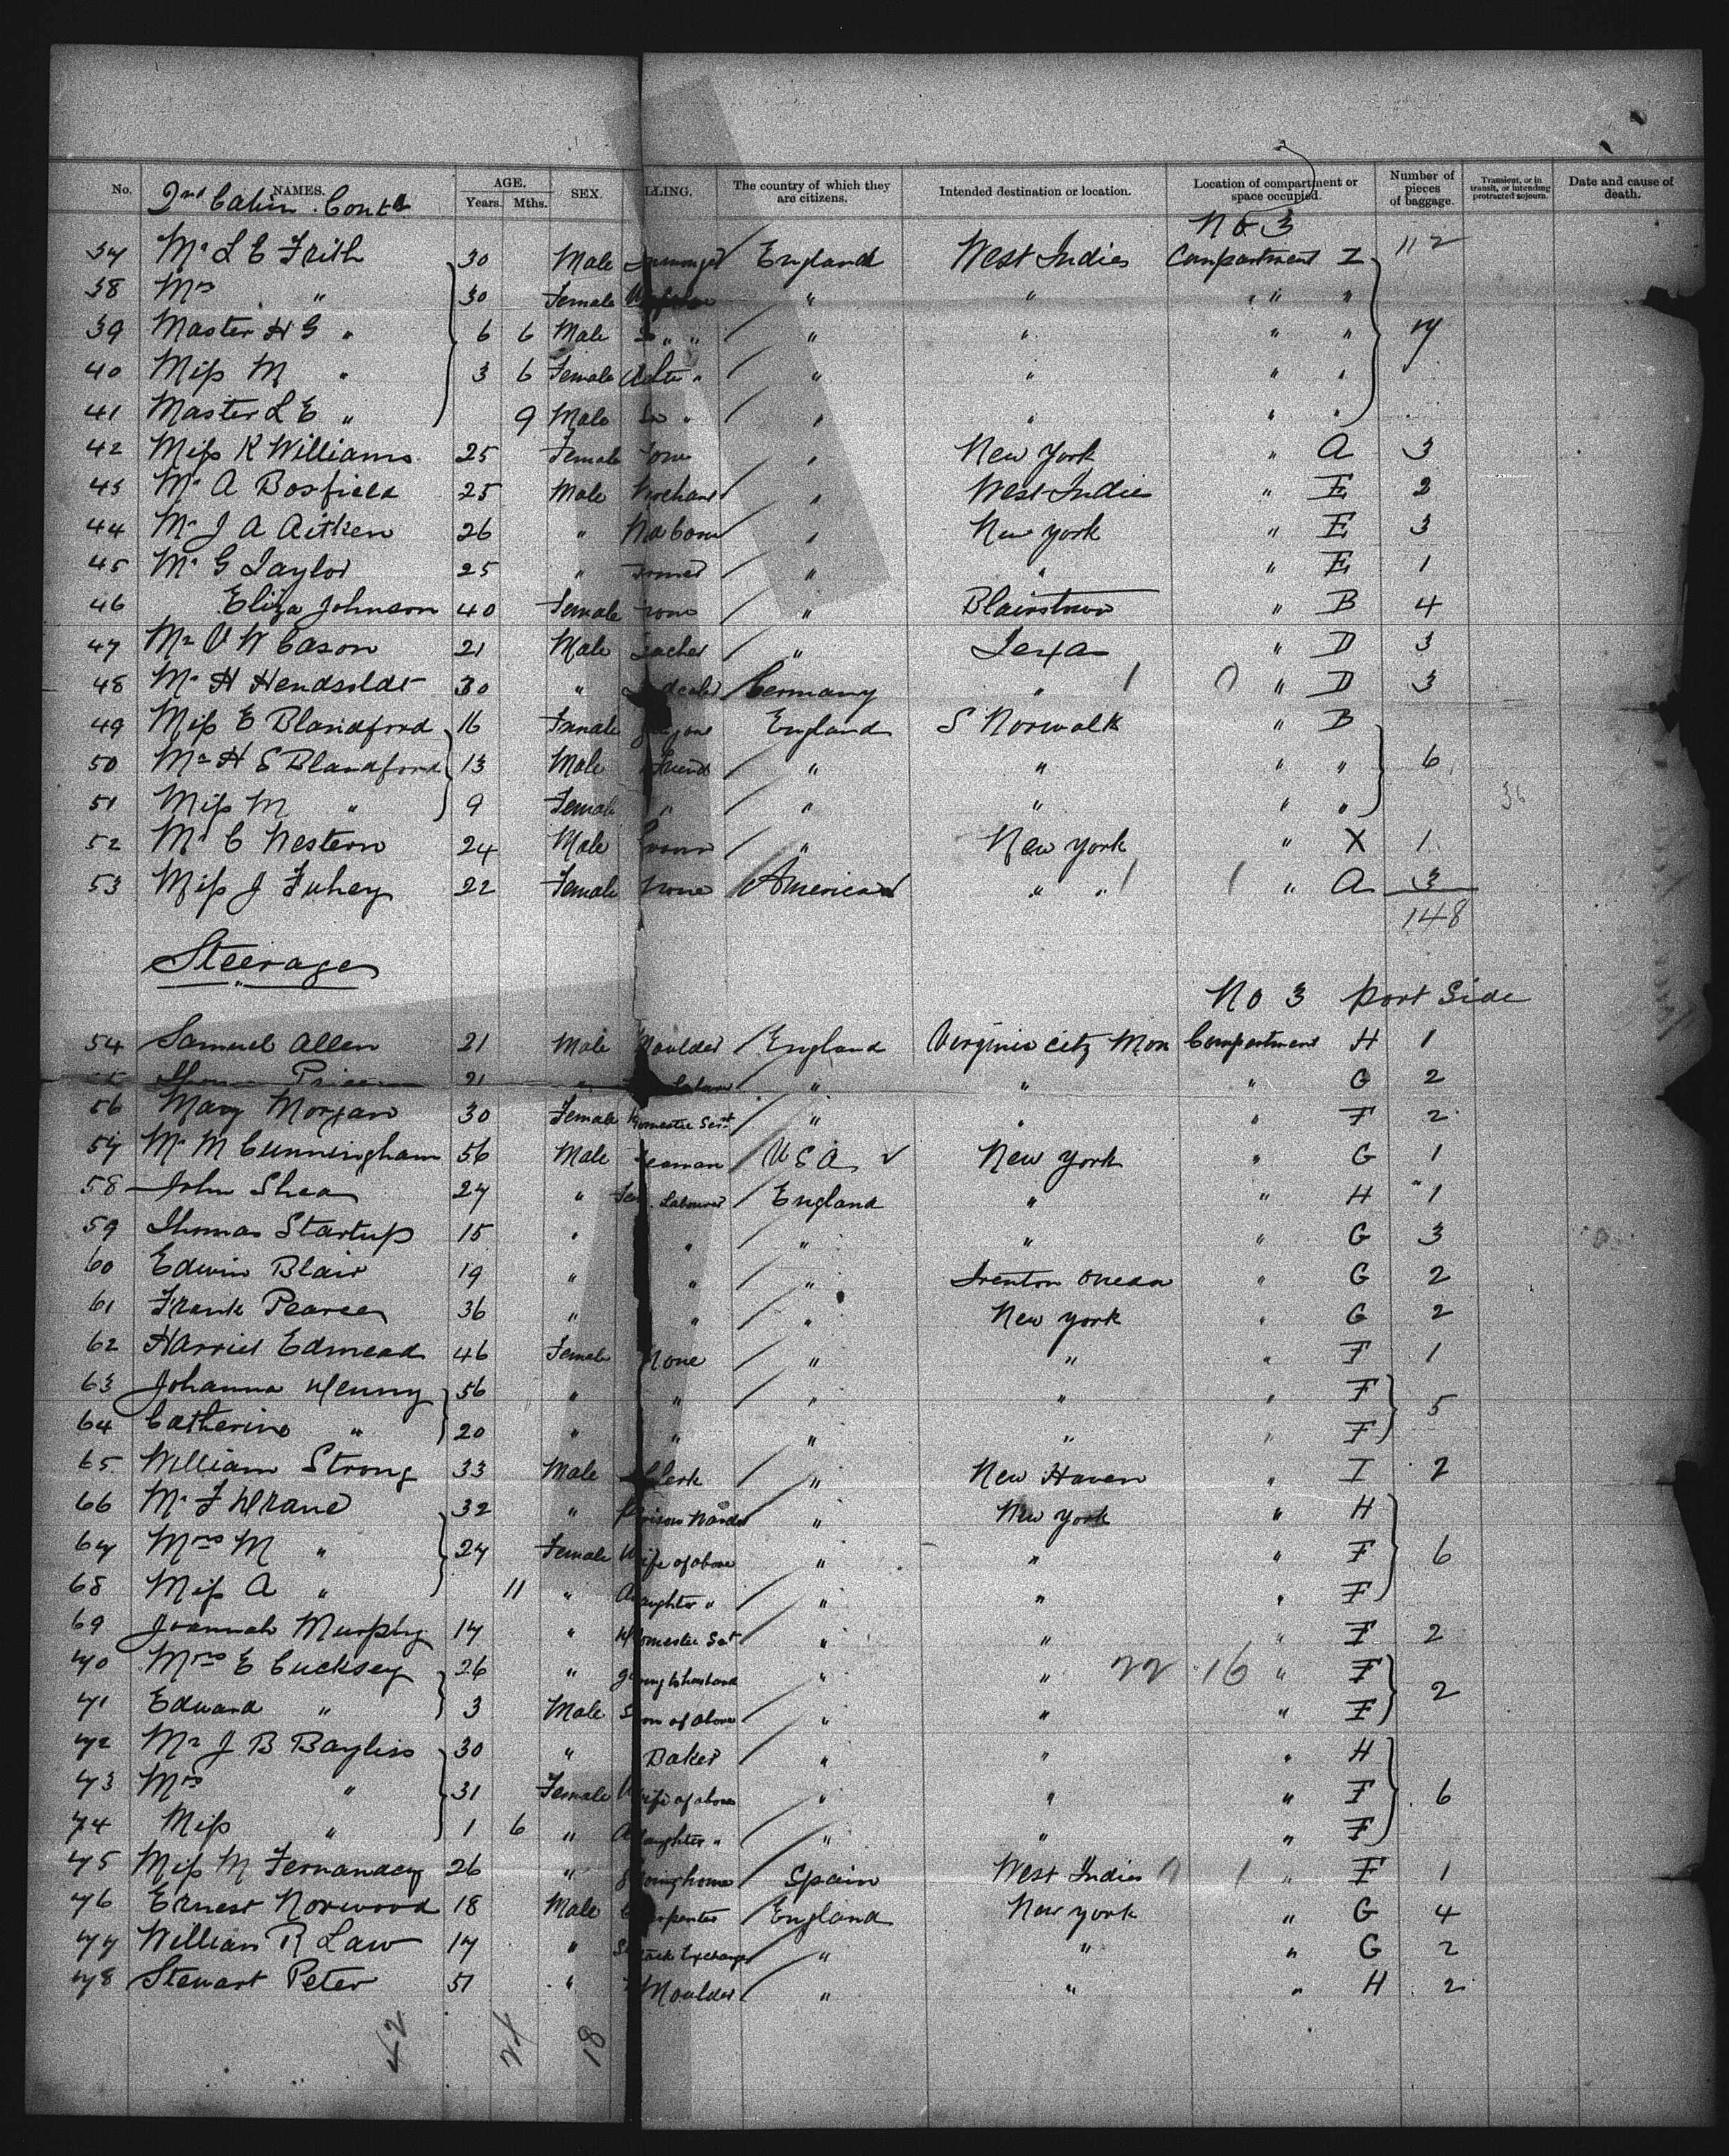 No. NAMES. AGE. Years. Mths. SEX. LLING. The country of which they are citizens. Intended destination or location. Location of compartment or space occupied. Number of pieces of baggage. Transient, or in transit, or intending protracted sojourn. Date and cause of death.
2nd Cabin Contd
No 3
37 Mr L E Frith 30 Male England West Indies Compartment I 112
38 Mrs " 30 Female " " " "
39 Master H G " 6 6 Male " " " " 17
40 Miss M " 3 6 Female " " " "
41 Master L E " 9 Male " " " "
42 Miss K Williams 25 Female " New York " A 3
43 Mr A Bosfield 25 Male " West Indies " E 2
44 Mr J A Aitken 26 " " New York " E 3
45 Mr G Taylor 25 " " " " E 1
46 Eliza Johnson 40 Female none " Blairstown " B 4
47 Mr V W Cason 21 Male " Texas " D 3
48 Mr H Hendsoldt 30 " Germany " " D 3
49 Miss E Blandford 16 Female England S Norwalk " B
50 Mr H S Blandford 13 Male friend " " " " 6
51 Miss M " 9 Female " " " " "
52 Mr C Western 24 Male " New York " X 1
53 Miss J Fuhey 22 Female none American " " " A 3
148
Steerage
No 3 Port Side
54 Samuel Allen 21 Male Moulder England Virginia City Mon Compartment H 1
Price 21 " " " " G 2
56 Mary Morgan 30 Female Domestic Sert " " " F 2
57 Mr M Cunningham 56 Male Seaman U S A New York " G 1
58 John Shea 27 " Labourer England " " H 1
59 Thomas Startup 15 " " " " " G 3
60 Edwin Blair 19 " " " Trenton " G 2
61 Frank Pearce 36 " " " New York " G 2
62 Harriet Edmead 46 Female None " " " F 1
63 Johanna Denny 56 " " " " " F 5
64 Catherine " 20 " " " " " F
65 William Strong 33 Male Clerk " New Haven " I 2
66 Mr F Drane 32 " Prison Warder " New York " H
67 Mrs M " 27 Female Wife of above " " " F 6
68 Miss A " 11 " Daughter " " " " F
69 Joannah Murphy 17 " Domestic Sert " " " F 2
70 Mrs E Cucksey 26 " going to husband " " 22 16 " F 2
71 Edward " 3 Male Son of above " " " F
72 Mr J B Bayliss 30 " Baker " " " H
73 Mrs " 31 Female Wife of above " " " F 6
74 Miss " 1 6 " Daughter " " " " F
75 Miss M Fernandez 26 " Going home Spain West Indies " F 1
76 Ernest Norwood 18 Male Carpenter England New York " G 4
77 William R Law 17 " Stock Exchange " " " G 2
78 Stewart Peter 51 " Moulder " " " H 2
42 24 18